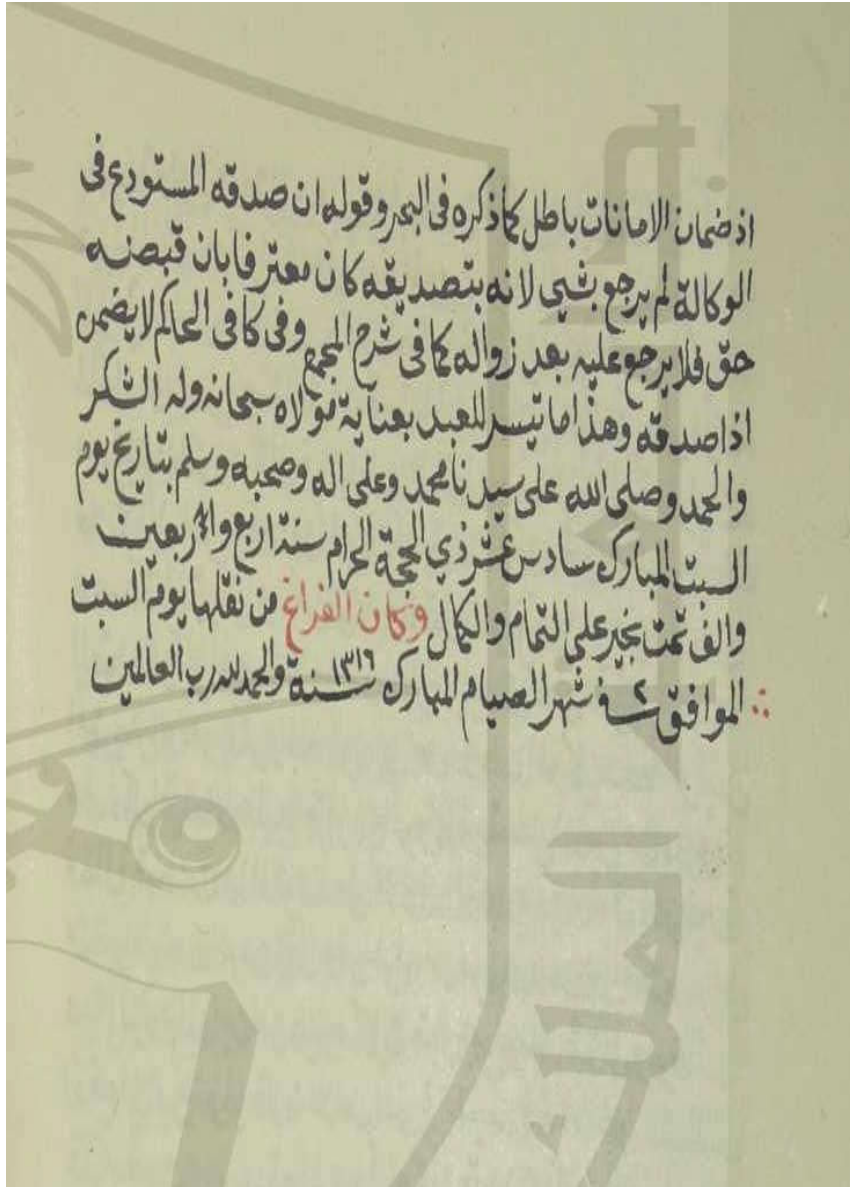 اذ ضمان الامانات باطل كما ذكره فى البحر وقوله ان صدقه المستودع فى
الوكالة لم يرجع بشيى لانه بتصديقه كان معترفا بان قبضه
حق فلا يرجع عليه بعد زواله كما فى شرح المجمع وفى كافى الحاكم لا يضمن
اذا صدقه وهذا ما تيسر للعبد بعناية مولاه سبحانه وله الشكر
والحمد وصلى الله على سيدنا محمد وعلى اله وصحبه وسلم بتاريخ يوم
السبت المبارك سادس عشر ذي الحجة الحرام سنة اربع واربعين
والف تمت بخير على التمام والكمال وكان الفراغ من نقلها يوم السبت
الموافق ٢ فى شهر الصيام المبارك سنة ١٣١٦ والحمد لله رب العالمين